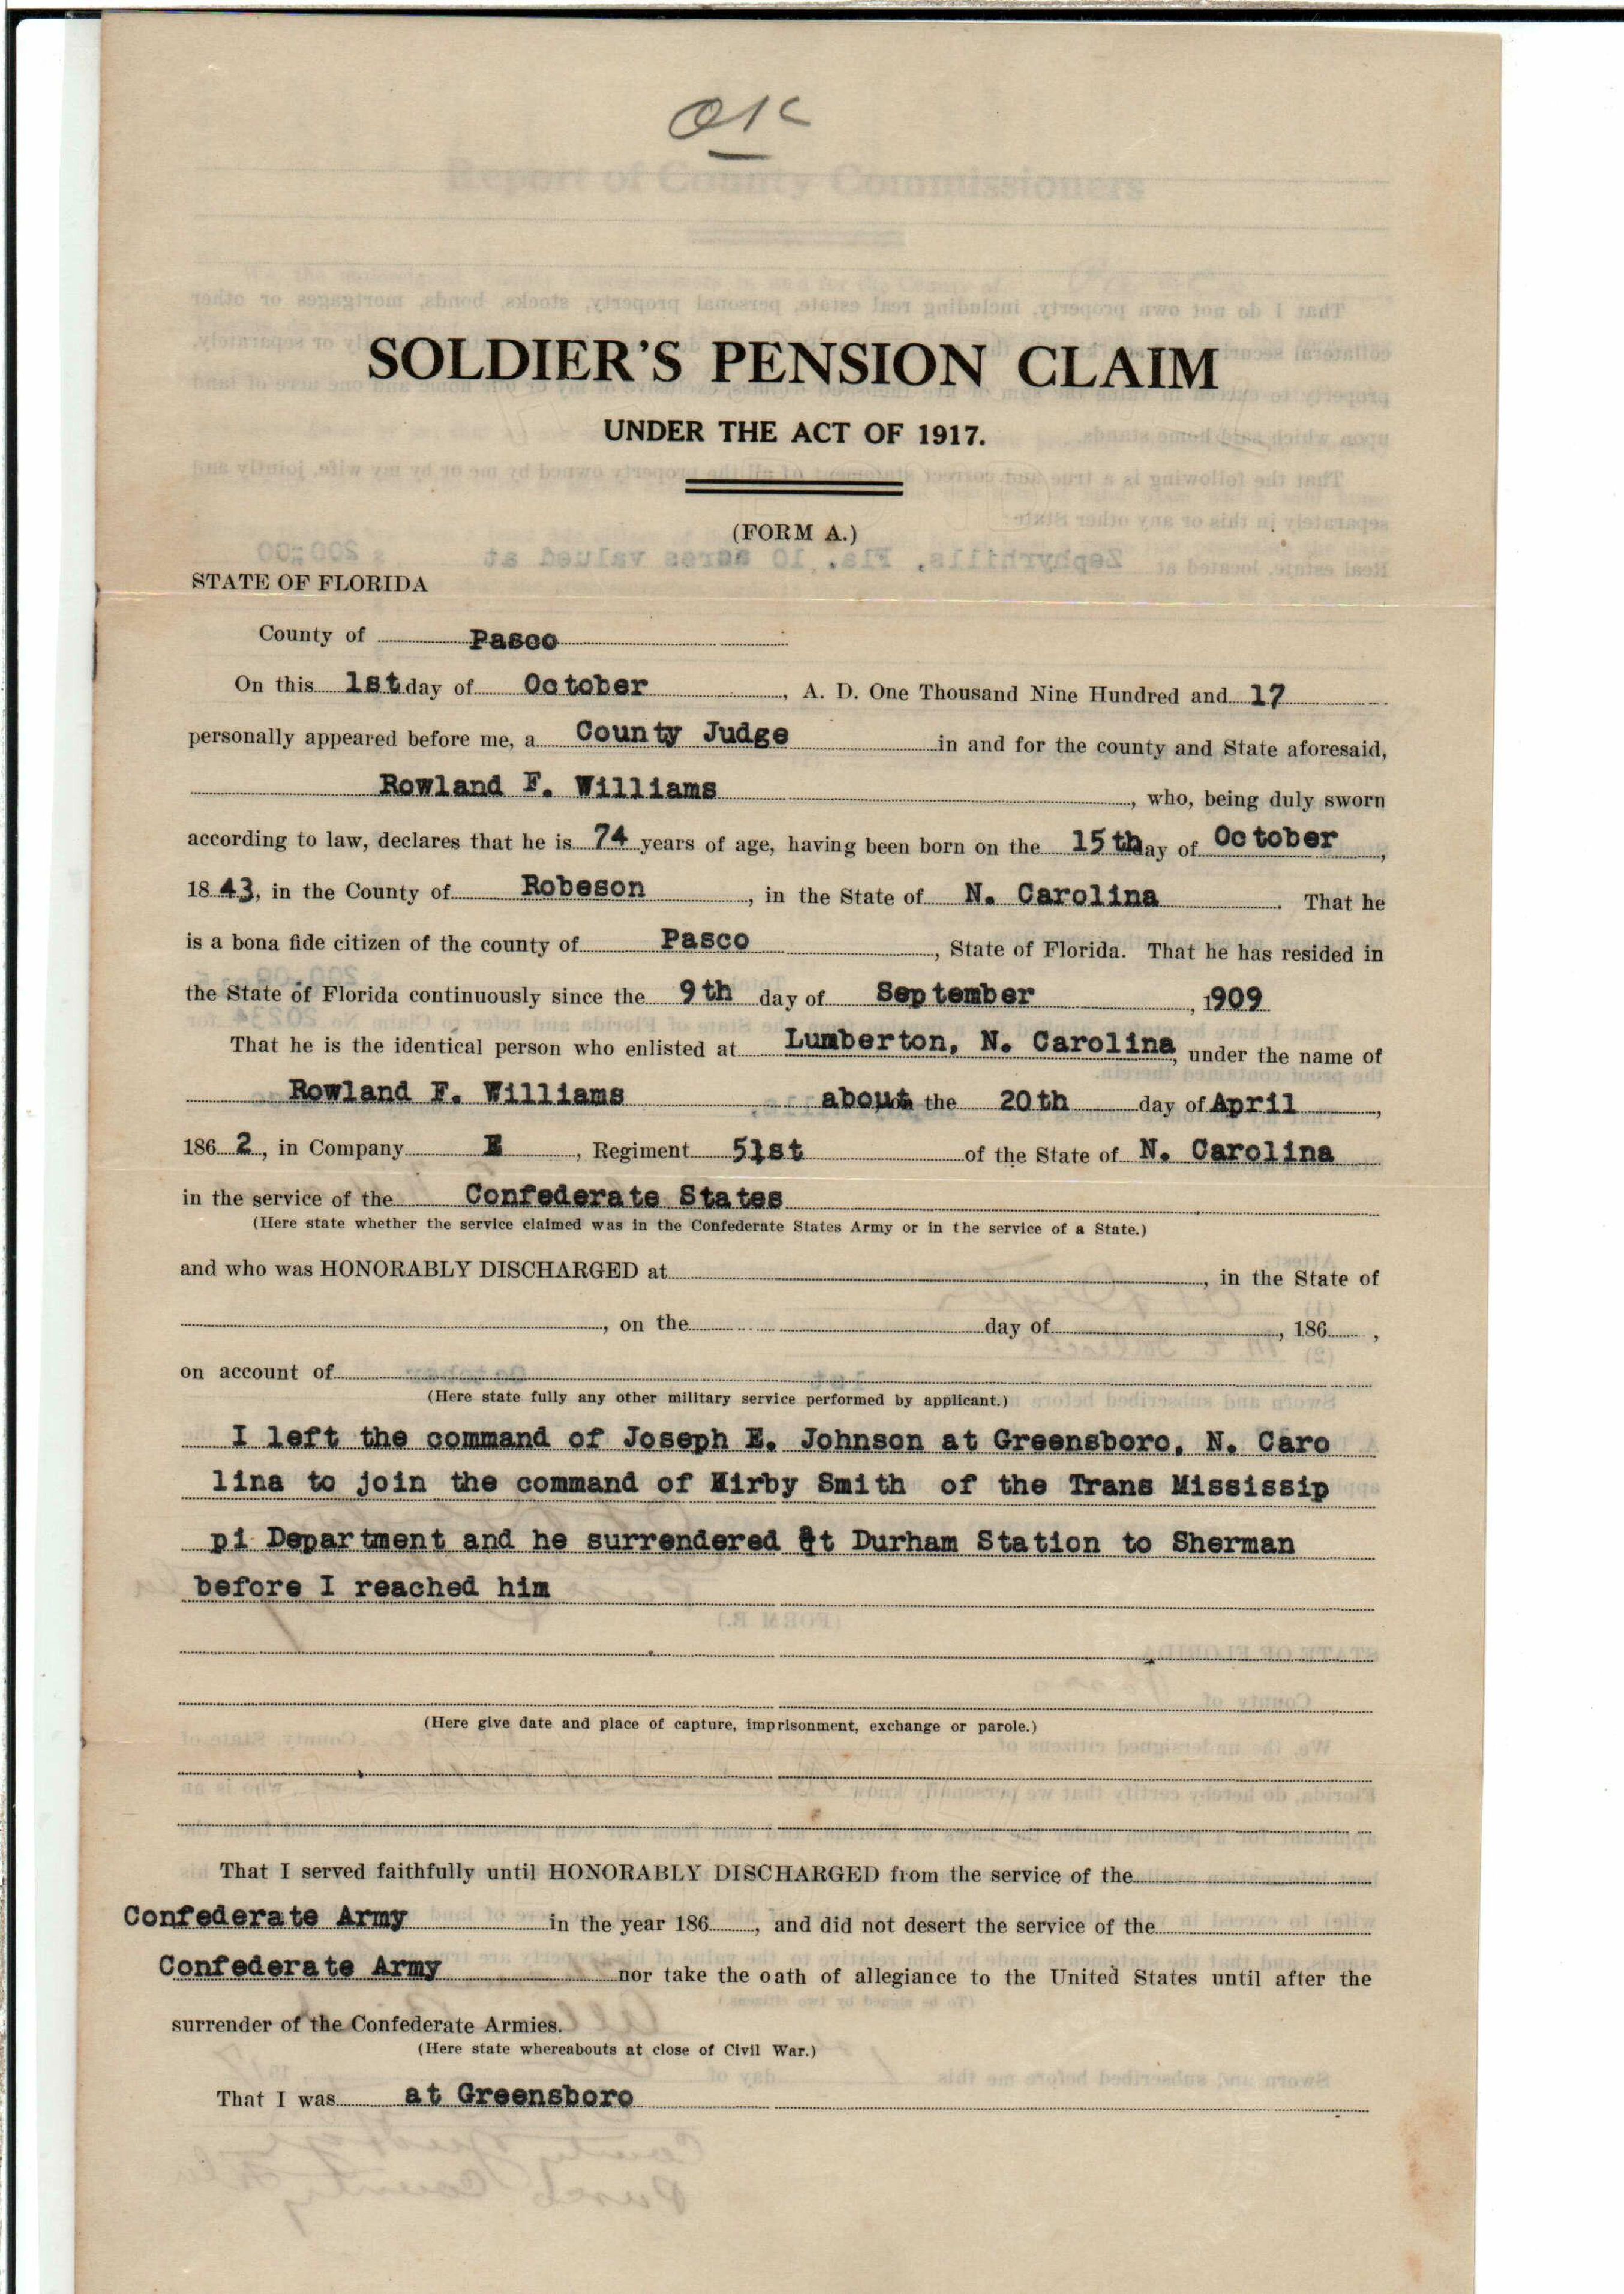 OK
SOLDIER'S PENSION CLAIM
UNDER THE ACT OF 1917.
(FORM A.)
STATE OF FLORIDA
County of Pasco
On this 1st day of October, A. D. One Thousand Nine Hundred and 17
personally appeared before me, a County Judge in and for the county and State aforesaid,
Rowland F. Williams, who, being duly sworn
according to law, declares that he is 74 years of age, having been born on the 15th day of October,
1843, in the County of Robeson, in the State of N. Carolina. That he
is a bona fide citizen of the county of Pasco, State of Florida. That he has resided in
the State of Florida continuously since the 9th day of September, 1909
That he is the identical person who enlisted at Lumberton, N. Carolina, under the name of
Rowland F. Williams about on the 20th day of April,
1862, in Company E, Regiment 51st of the State of N. Carolina
in the service of the Confederate States
(Here state whether the service claimed was in the Confederate States Army or in the service of a State.)
and who was HONORABLY DISCHARGED at, in the State of
, on the day of, 186 ,
on account of
(Here state fully any other military service performed by applicant.)
I left the command of Joseph E. Johnson at Greensboro, N. Caro
lina to join the command of Kirby Smith of the Trans Mississip
pi Department and he surrendered at Durham Station to Sherman
before I reached him
(Here give date and place of capture, imprisonment, exchange or parole.)
That I served faithfully until HONORABLY DISCHARGED from the service of the
Confederate Army in the year 186, and did not desert the service of the
Confederate Army nor take the oath of allegiance to the United States until after the
surrender of the Confederate Armies.
(Here state whereabouts at close of Civil War.)
That I was at Greensboro